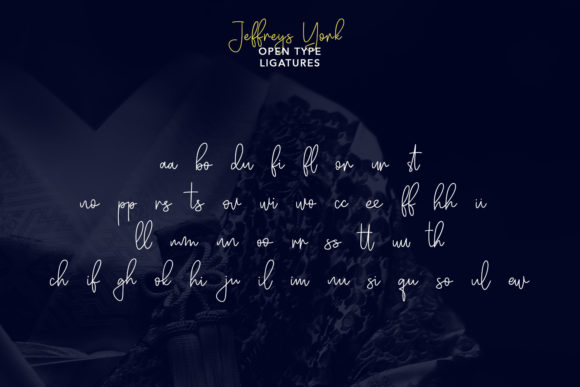 Jeffreys York
OPEN TYPE
LIGATURES
aa bo du fi fl or ur st
no pp rs ts ov wi wo cc ee ff hh ii
ll mm nn oo rr ss tt uu th
ch if gh ok hi ju il im nu si qu so ul ew